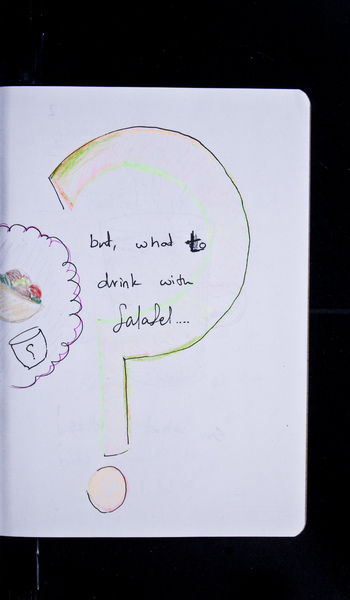 but, what to
drink with
falafel....
?